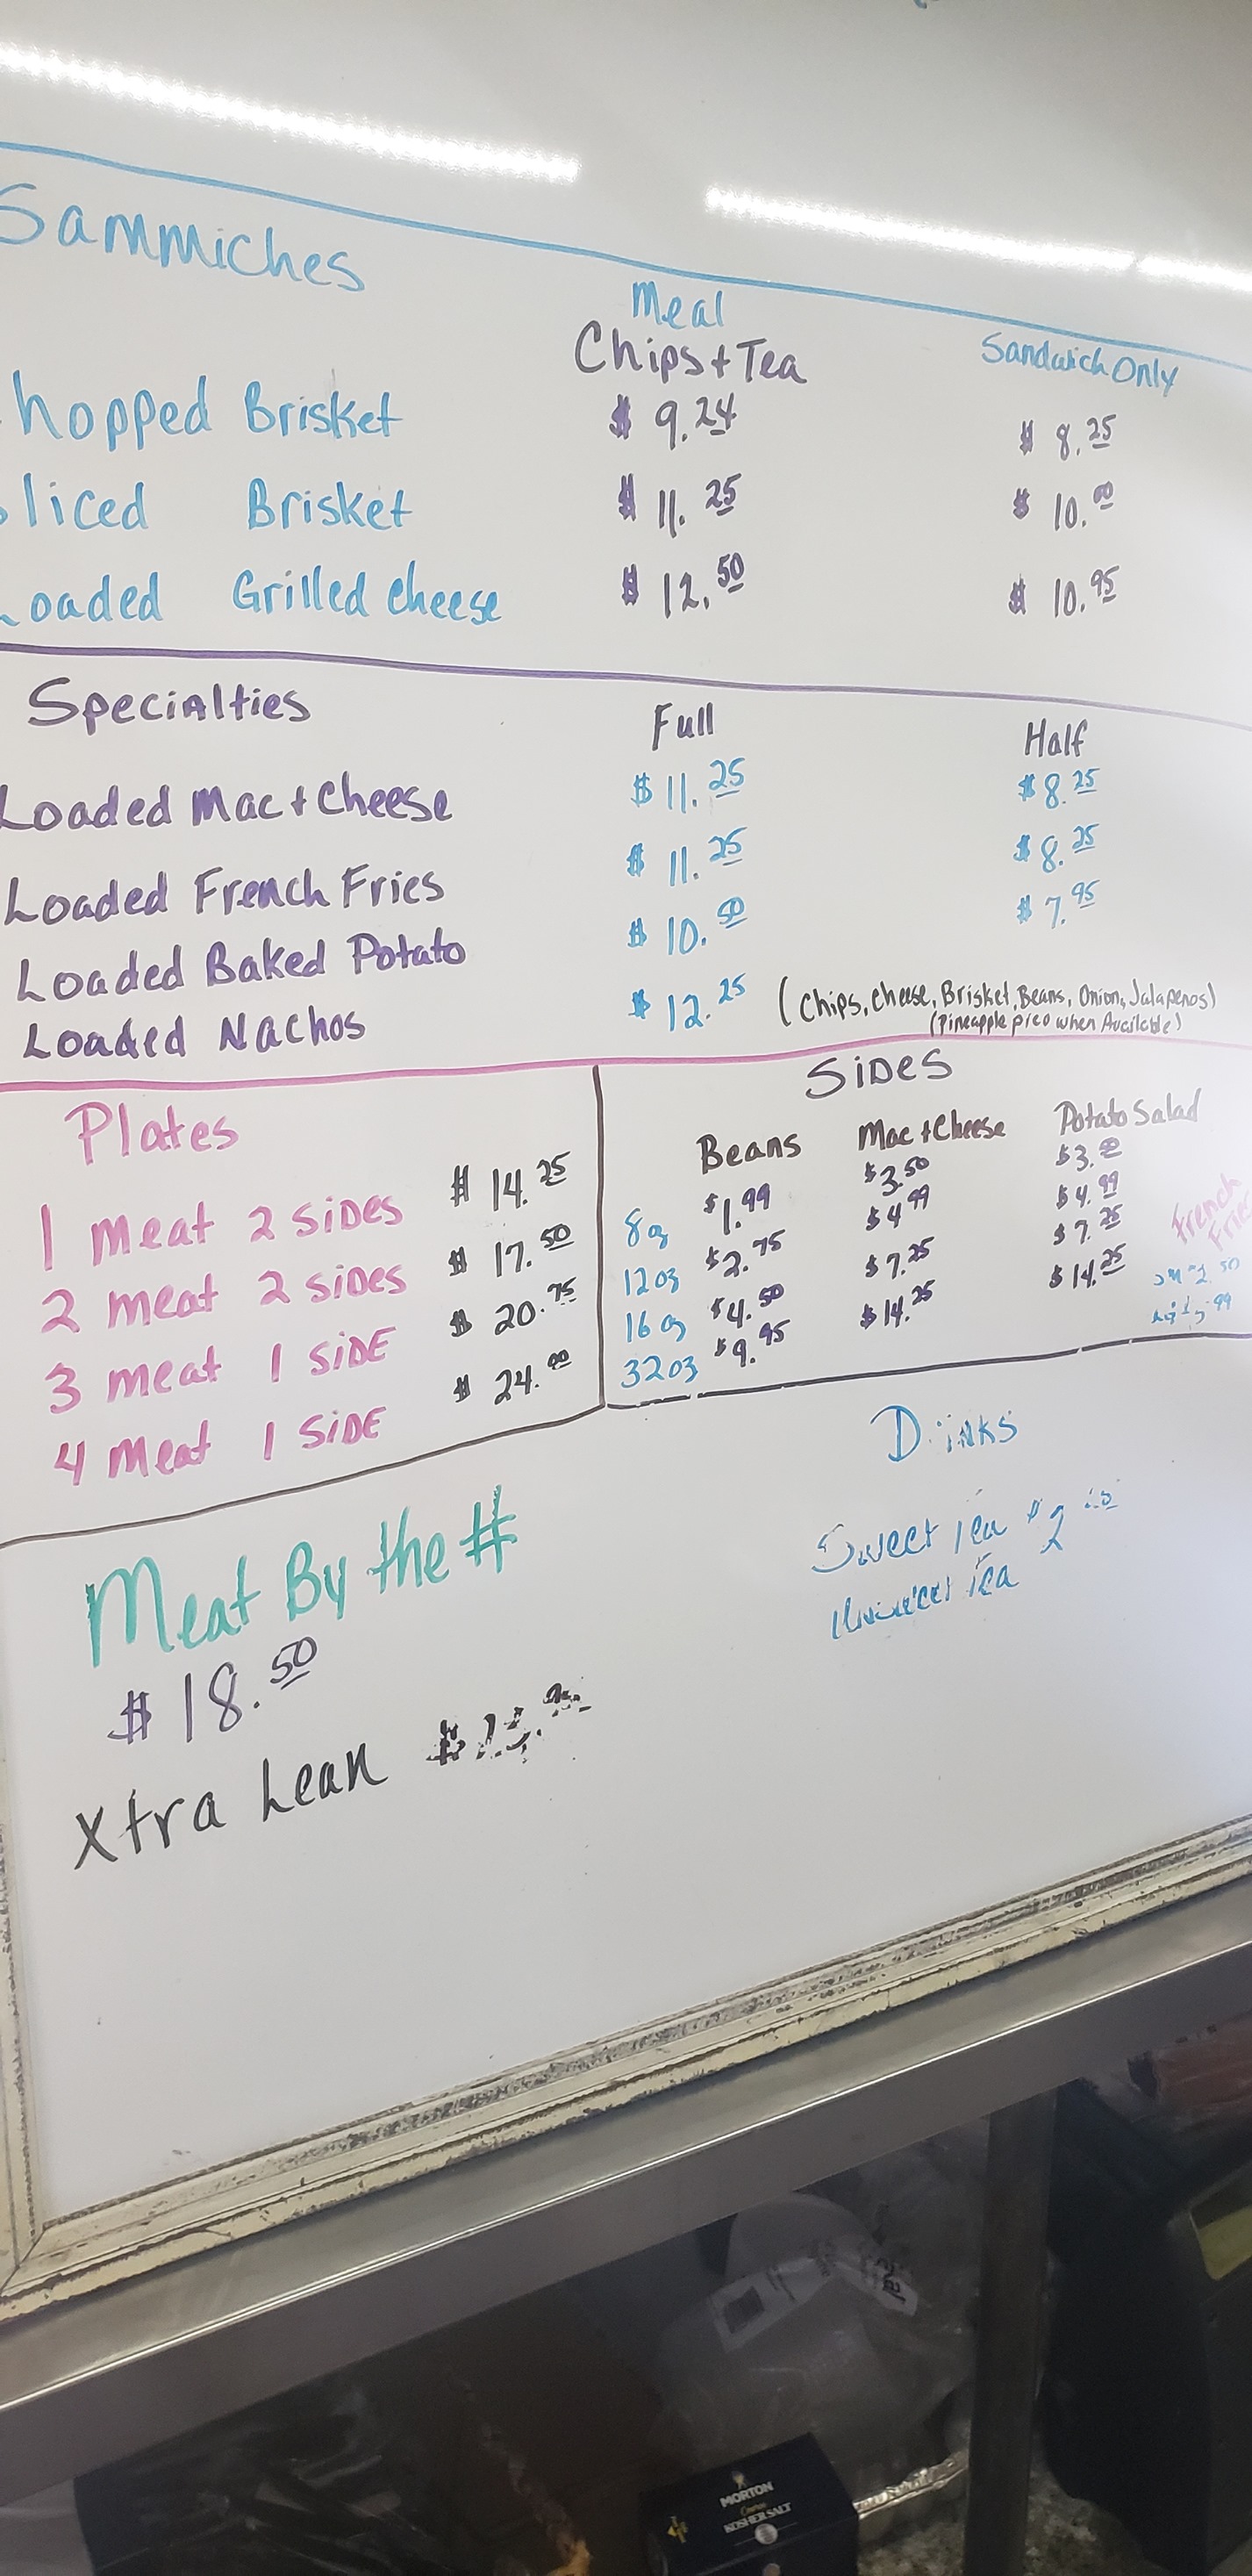 Sammiches
Meal
Chips + Tea
Sandwich Only
hopped Brisket $ 9.24 $ 8.25
liced Brisket $ 11.25 $ 10.00
oaded Grilled cheese $ 12.50 $ 10.95
Specialties Full Half
Loaded Mac + Cheese $ 11.25 $ 8.25
Loaded French Fries $ 11.25 $ 8.25
Loaded Baked Potato $ 10.50 $ 7.95
Loaded Nachos $ 12.25 (Chips, Cheese, Brisket, Beans, Onion, Jalapenos)
(Pineapple pico when Available)
Plates
1 Meat 2 SiDes $ 14.25
2 meat 2 sides $ 17.50
3 meat 1 SiDE $ 20.75
4 Meat 1 SiDE $ 24.00
SiDes
Beans Mac + Cheese Potato Salad
8oz $1.99 $3.50 $3.00
12oz $2.75 $4.99 $4.99
16oz $4.50 $7.25 $7.25
32oz $9.95 $14.25 $14.25
French
Fries
Drinks
Sweet Tea $2
Tea
Meat By the #
$ 18.50
Xtra Lean
MORTON
Coarse
KOSHER SALT